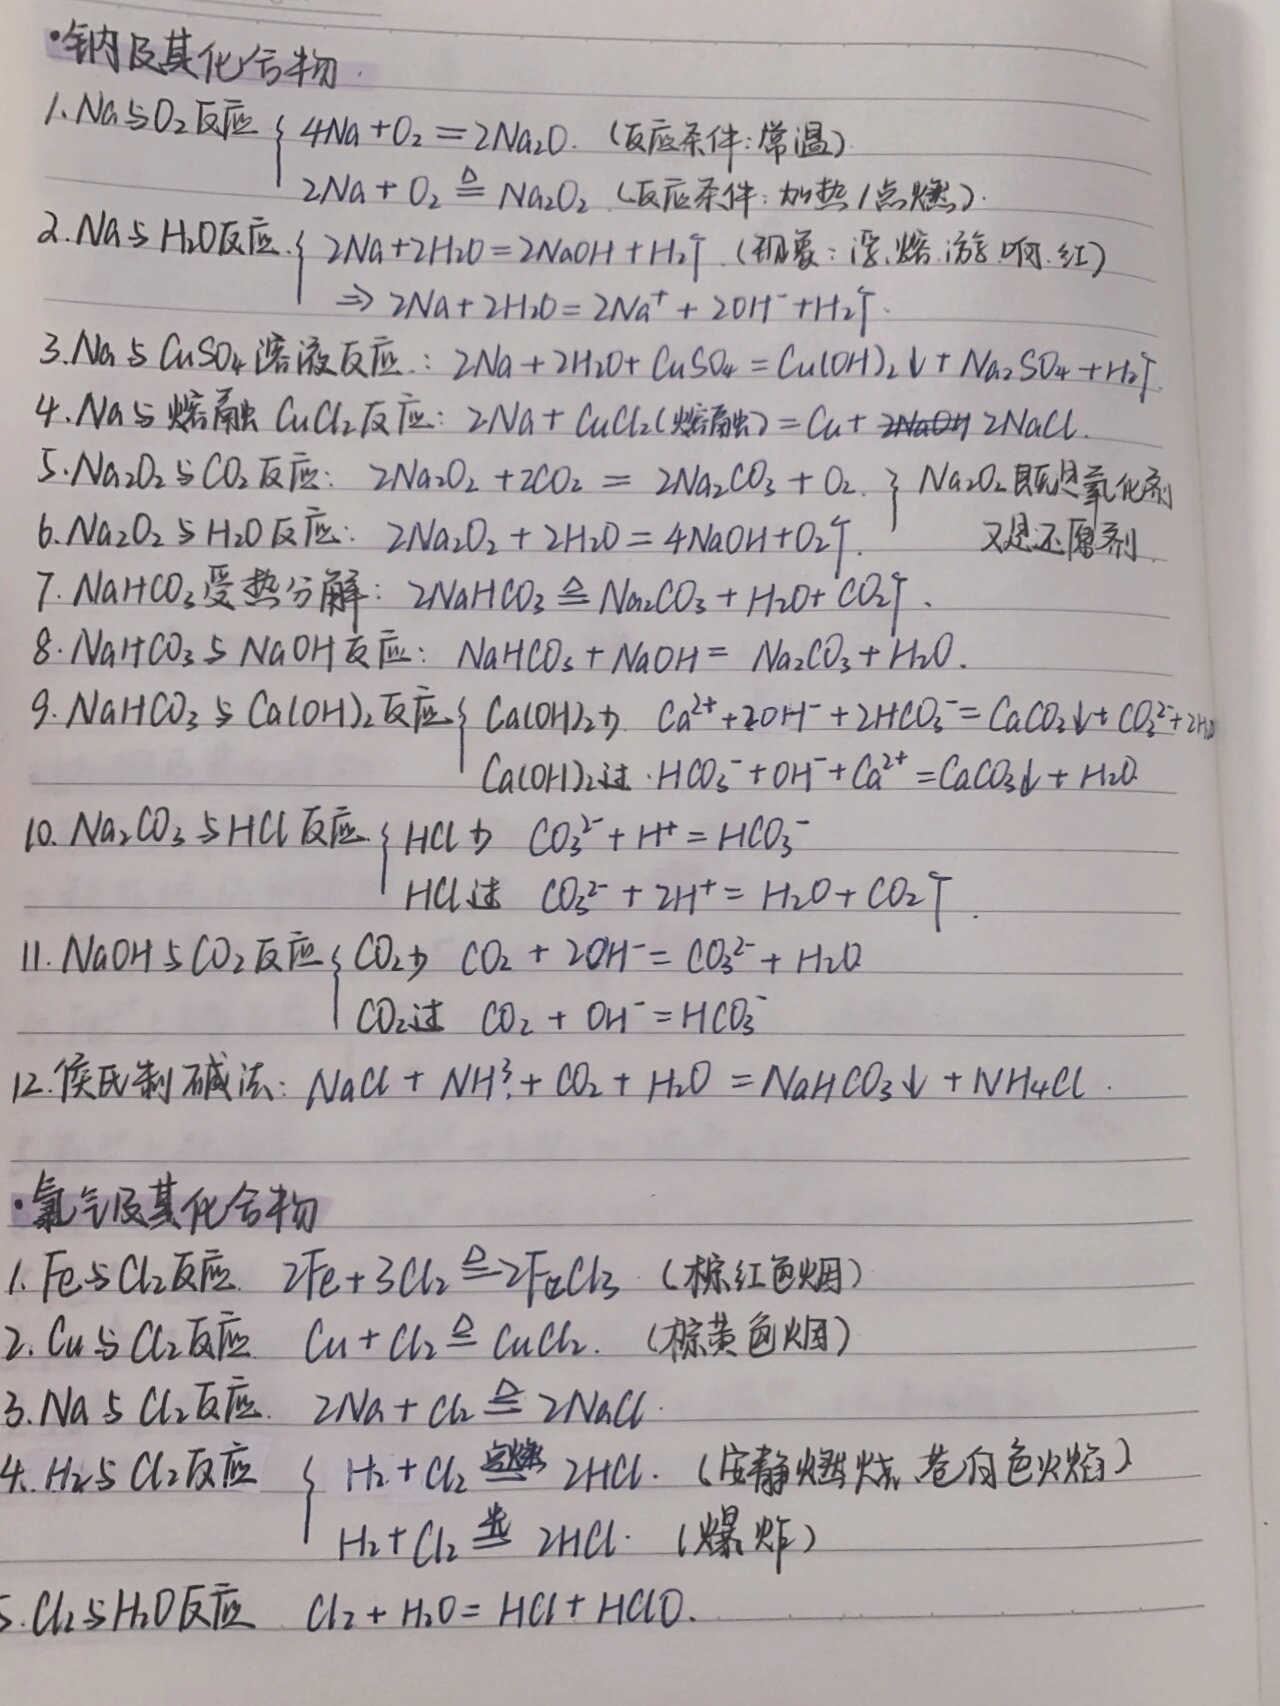 ·钠及其化合物
1.Na与O₂反应 { 4Na+O₂=2Na₂O. (反应条件:常温)
2Na+O₂ ≜ Na₂O₂ (反应条件:加热/点燃).
2.Na与H₂O反应 { 2Na+2H₂O=2NaOH+H₂↑ (现象:浮.熔.游.响.红)
⇒ 2Na+2H₂O=2Na⁺+2OH⁻+H₂↑.
3.Na与CuSO₄溶液反应: 2Na+2H₂O+CuSO₄=Cu(OH)₂↓+Na₂SO₄+H₂↑.
4.Na与熔融CuCl₂反应: 2Na+CuCl₂(熔融)=Cu+ 2NaOH 2NaCl.
5.Na₂O₂与CO₂反应: 2Na₂O₂+2CO₂=2Na₂CO₃+O₂. } Na₂O₂既是氧化剂
6.Na₂O₂与H₂O反应: 2Na₂O₂+2H₂O=4NaOH+O₂↑. 又是还原剂
7.NaHCO₃受热分解: 2NaHCO₃ ≜ Na₂CO₃+H₂O+CO₂↑.
8.NaHCO₃与NaOH反应: NaHCO₃+NaOH=Na₂CO₃+H₂O.
9.NaHCO₃与Ca(OH)₂反应 { Ca(OH)₂少 Ca²⁺+2OH⁻+2HCO₃⁻=CaCO₃↓+CO₃²⁻+2H₂O
Ca(OH)₂过 HCO₃⁻+OH⁻+Ca²⁺=CaCO₃↓+H₂O
10.Na₂CO₃与HCl反应 { HCl少 CO₃²⁻+H⁺=HCO₃⁻
HCl过 CO₃²⁻+2H⁺=H₂O+CO₂↑.
11.NaOH与CO₂反应 { CO₂少 CO₂+2OH⁻=CO₃²⁻+H₂O
CO₂过 CO₂+OH⁻=HCO₃⁻
12.侯氏制碱法: NaCl+NH₃+CO₂+H₂O=NaHCO₃↓+NH₄Cl.
·氯气及其化合物
1.Fe与Cl₂反应 2Fe+3Cl₂ ≜ 2FeCl₃ (棕红色烟)
2.Cu与Cl₂反应 Cu+Cl₂ ≜ CuCl₂. (棕黄色烟)
3.Na与Cl₂反应. 2Na+Cl₂ ≜ 2NaCl.
4.H₂与Cl₂反应 { H₂+Cl₂ 点燃= 2HCl. (安静燃烧,苍白色火焰)
H₂+Cl₂ 光= 2HCl. (爆炸)
5.Cl₂与H₂O反应 Cl₂+H₂O=HCl+HClO.